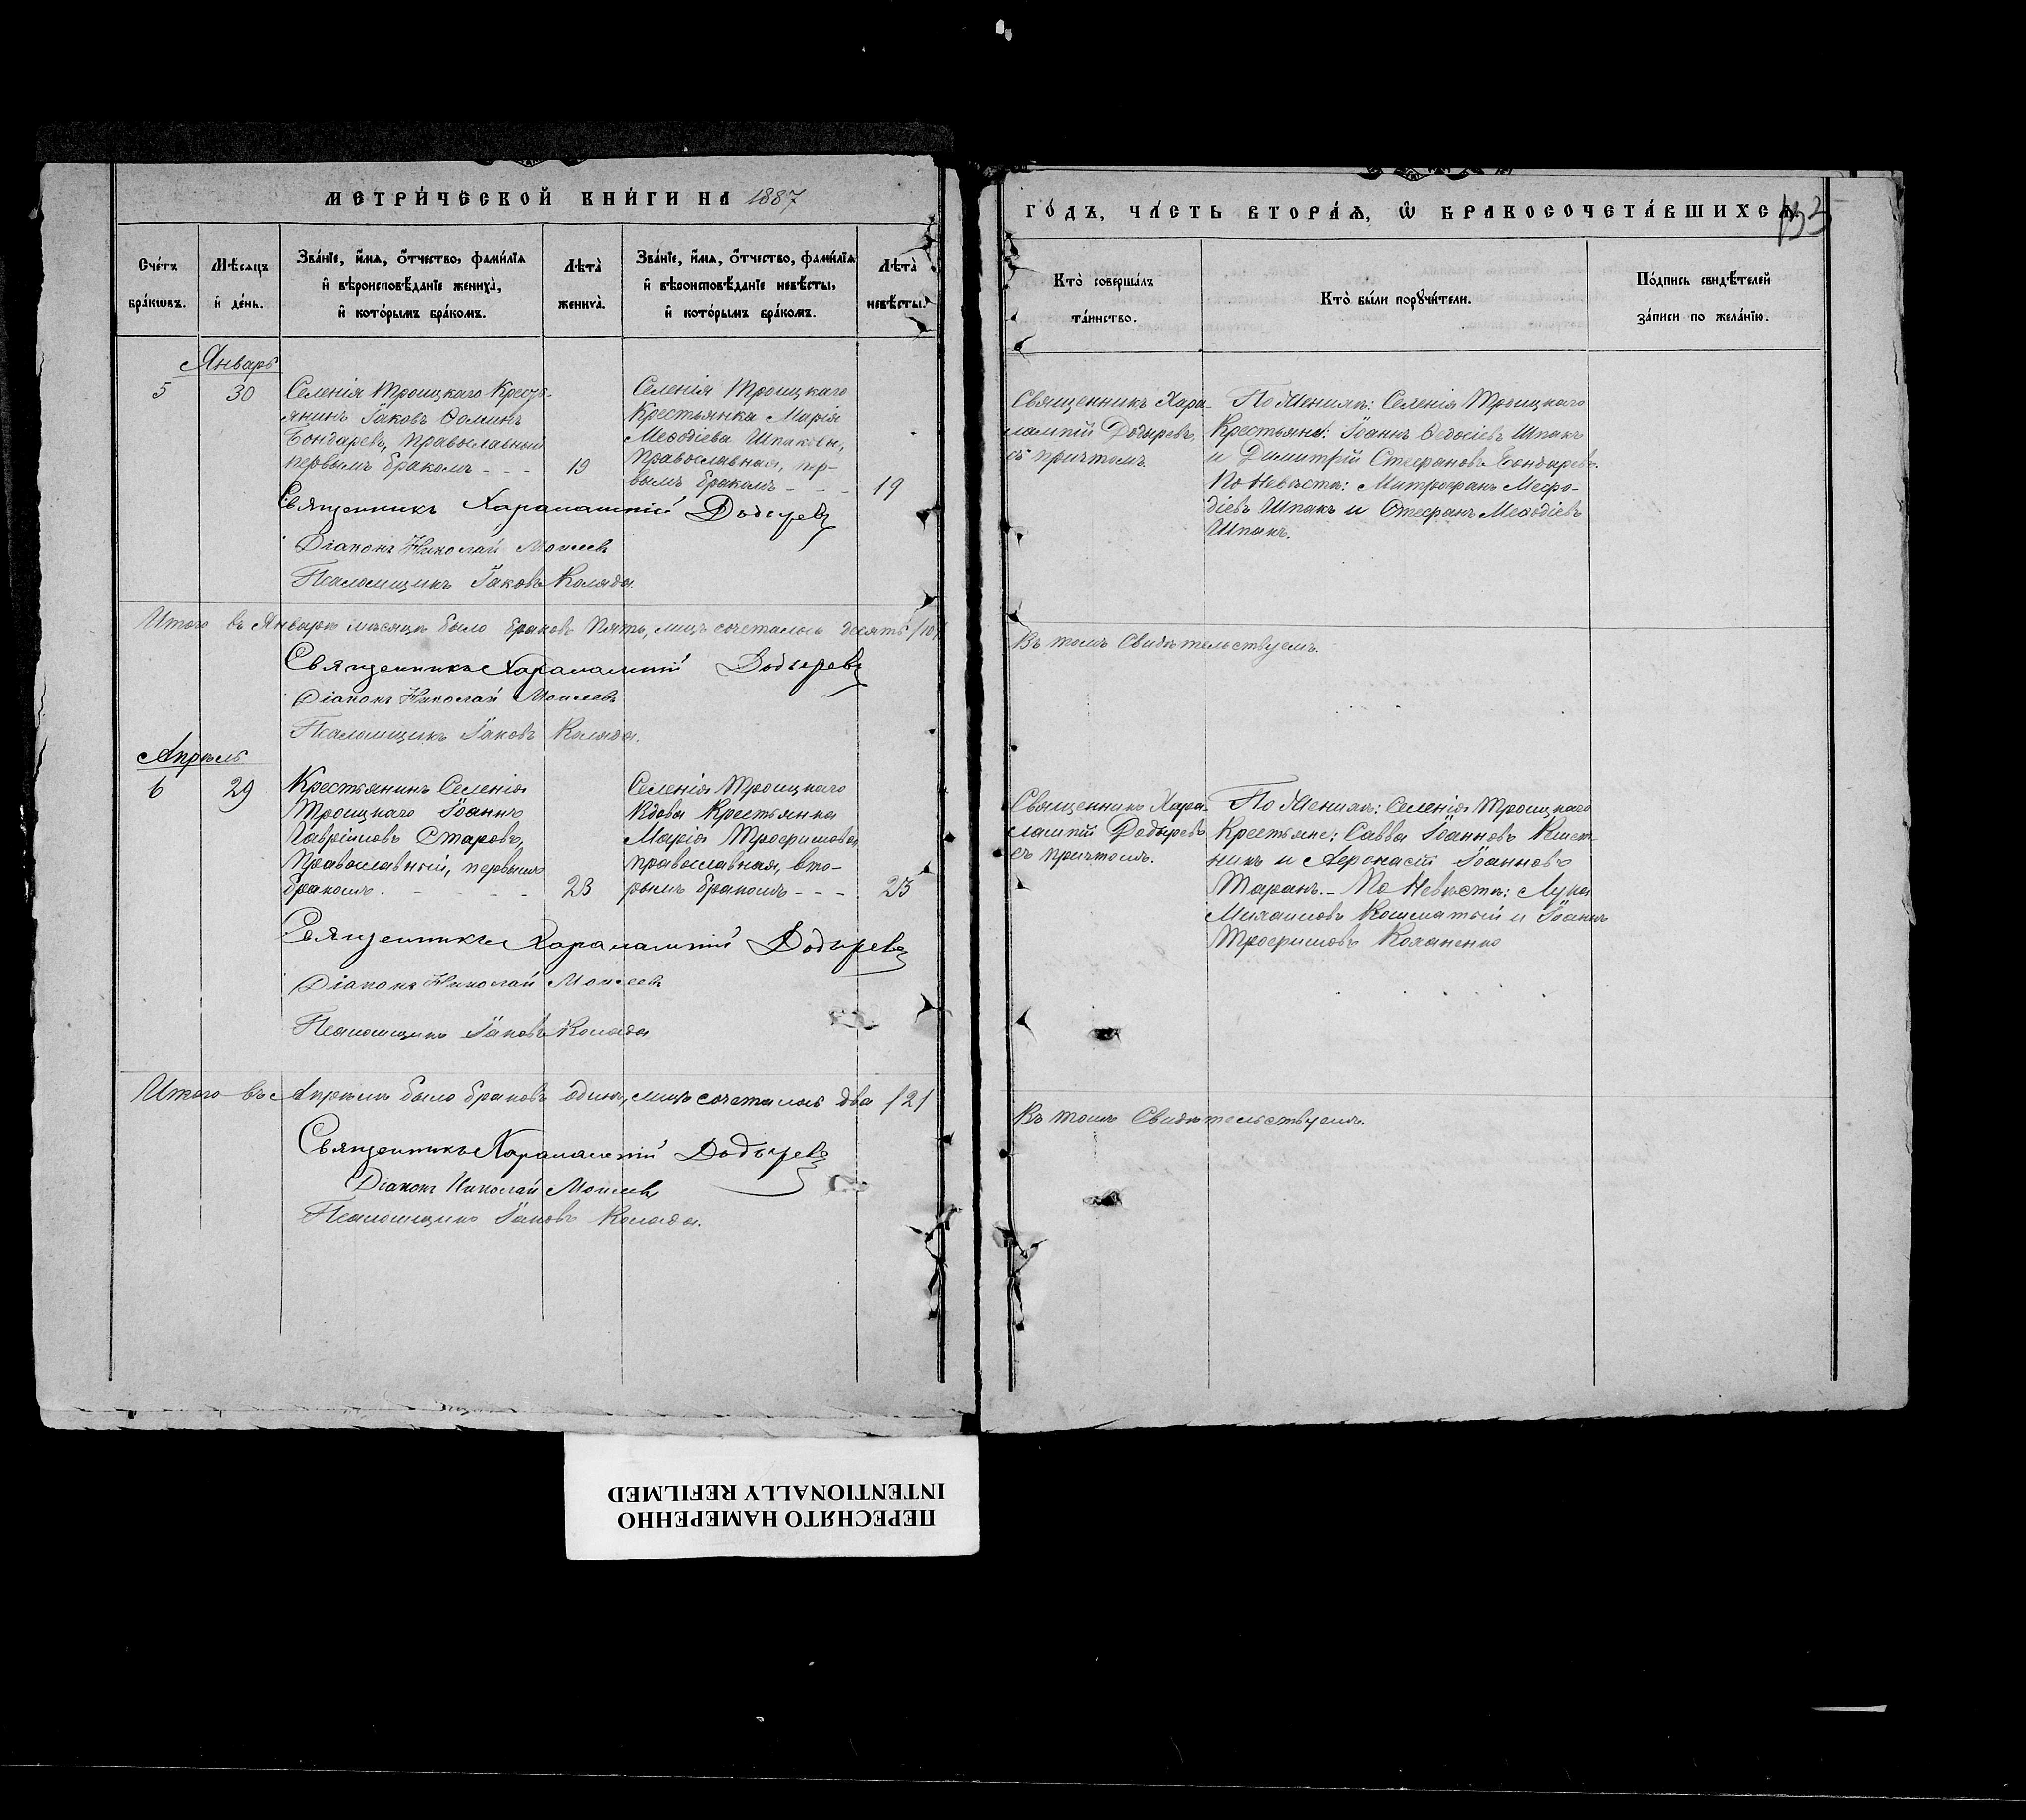 МЕТРИ́ЧЕСКОЙ КНИ́ГИ НА 1887
Сче́тъ
бра́кѡвъ.
Мѣ́сяцъ
и҆ де́нь.
Зва́нїе, и҆́мя, ѻ҆́тчество, фами́лїя
и҆ вѣроисповѣ́данїе жениха̀,
и҆ кото́рымъ бра́комъ.
Лѣта̀
жениха̀.
Зва́нїе, и҆́мя, ѻ҆́тчество, фами́лїя
и҆ вѣроисповѣ́данїе невѣ́сты,
и҆ кото́рымъ бра́комъ.
Лѣта̀
невѣ́сты.
Январь
5
30
Селенія Троицкаго Кресть-
янинъ Іаковъ Ѳоминъ
Бондаревъ, православный
первымъ бракомъ - - -
19
Селенія Троицкаго
Крестьянка Марія
Меѳодіева Шпакова,
православная, пер-
вымъ бракомъ - - -
19
Священникъ Харалампій Додыревъ
Діаконъ Николай Моисеевъ
Псаломщикъ Іаковъ Коляда.
Итого въ Январѣ мѣсяцѣ было браковъ Пять, лицъ сочеталось десять /10/
Священникъ Харалампій Додыревъ
Діаконъ Николай Моисеевъ
Псаломщикъ Іаковъ Коляда.
Апрѣль
6
29
Крестьянинъ Селенія
Троицкаго Іоаннъ
Гавріиловъ Старовъ,
Православный, первымъ
бракомъ. - - - -
23
Селенія Троицкаго
Вдова Крестьянка
Марія Трофимова
православная, вто-
рымъ бракомъ - - -
25
Священникъ Харалампій Додыревъ
Діаконъ Николай Моисеевъ
Псаломщикъ Іаковъ Коляда
Итого въ Апрѣлѣ было браковъ одинъ, лицъ сочеталось два /2/
Священникъ Харалампій Додыревъ
Діаконъ Николай Моисеевъ
Псаломщикъ Іаковъ Коляда.
ГО́ДЪ, ЧА́СТЬ ВТОРА́Я, Ѽ БРАКОСОЧЕТА́ВШИХСЯ.
Кто̀ соверша́лъ
та́инство.
Кто̀ бы́ли порꙋчи́тели.
По́дпись свидѣ́телей
за́писи по жела́нїю.
Священникъ Хара-
лампій Додыревъ
съ причтомъ.
По Женихѣ: Селенія Троицкаго
Крестьяне: Іоаннъ Ѳедосіевъ Шпакъ
и Димитрій Стефановъ Бондаревъ.
По Невѣстѣ: Митрофанъ Мефо-
діевъ Шпакъ и Стефанъ Меѳодіевъ
Шпакъ.
Въ томъ Свидѣтельствуемъ.
Священникъ Хара-
лампій Додыревъ
съ причтомъ.
По Женихѣ: Селенія Троицкаго
Крестьяне: Савва Іоанновъ
и Афонасій Іоанновъ
Таранъ. - По Невѣстѣ: Лука
Михаиловъ Кошматый и Іоаннъ
Трофимовъ
Въ томъ Свидѣтельствуемъ.
ПЕРЕСНЯТО НАМЕРЕННО
INTENTIONALLY REFILMED